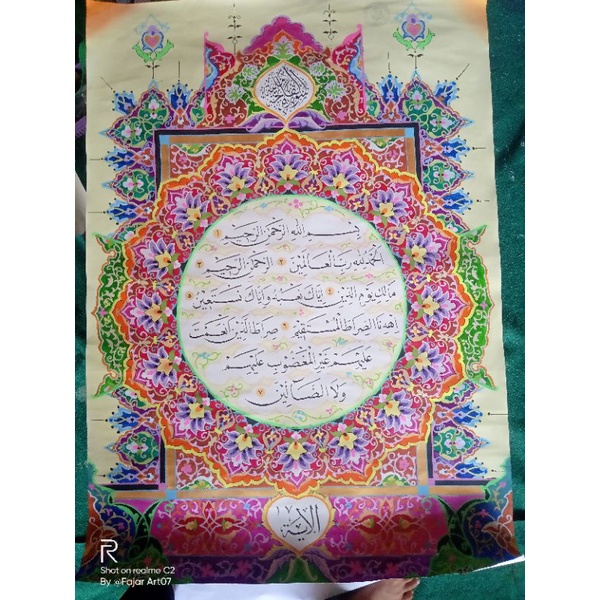 بِسْمِ اللهِ الرَّحْمٰنِ الرَّحِيْمِ ١
اَلْحَمْدُ لِلّٰهِ رَبِّ الْعَالَمِيْنَ ٢ الرَّحْمٰنِ الرَّحِيْمِ ٣
مَالِكِ يَوْمِ الدِّيْنِ ٤ اِيَّاكَ نَعْبُدُ وَاِيَّاكَ نَسْتَعِيْنُ ٥
اِهْدِنَا الصِّرَاطَ الْمُسْتَقِيْمَ ٦ صِرَاطَ الَّذِيْنَ اَنْعَمْتَ
عَلَيْهِمْ غَيْرِ الْمَغْضُوْبِ عَلَيْهِمْ
وَلَا الضَّالِّيْنَ ٧
الآية
R
Shot on realme C2
By :@Fajar Art07